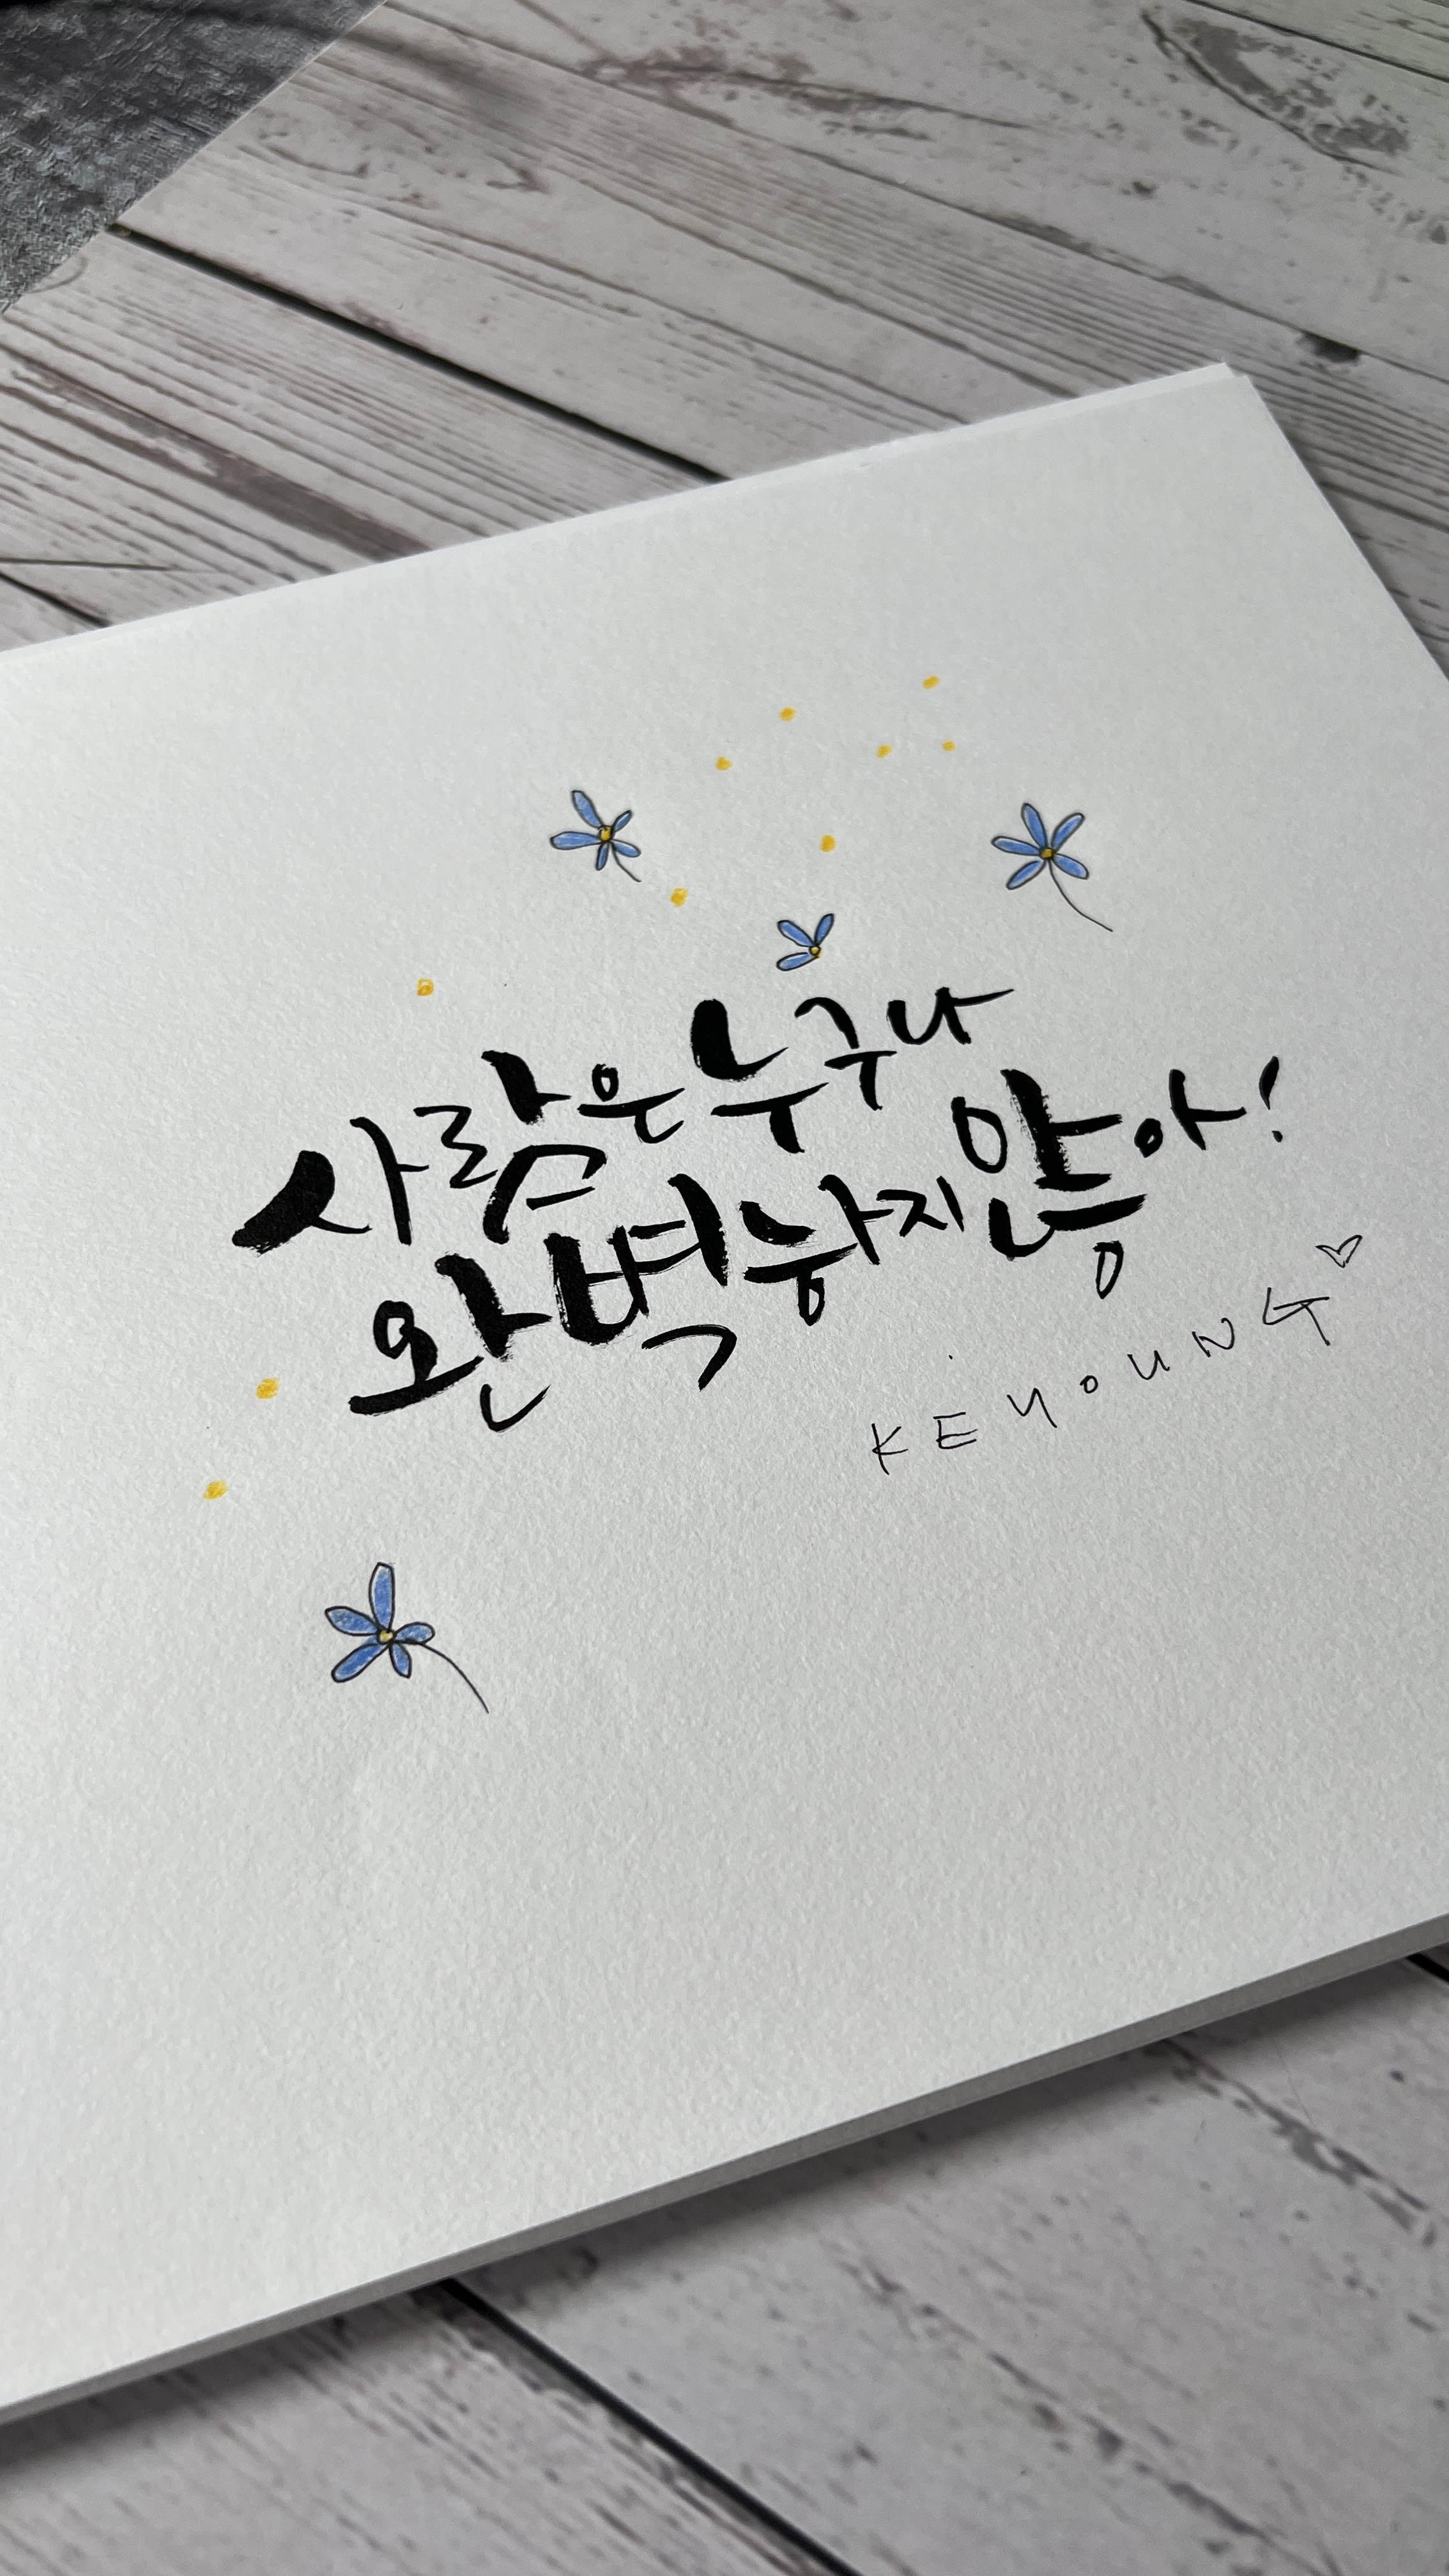 사람은 누구나
완벽하지 않아!
KEYOUNG♡